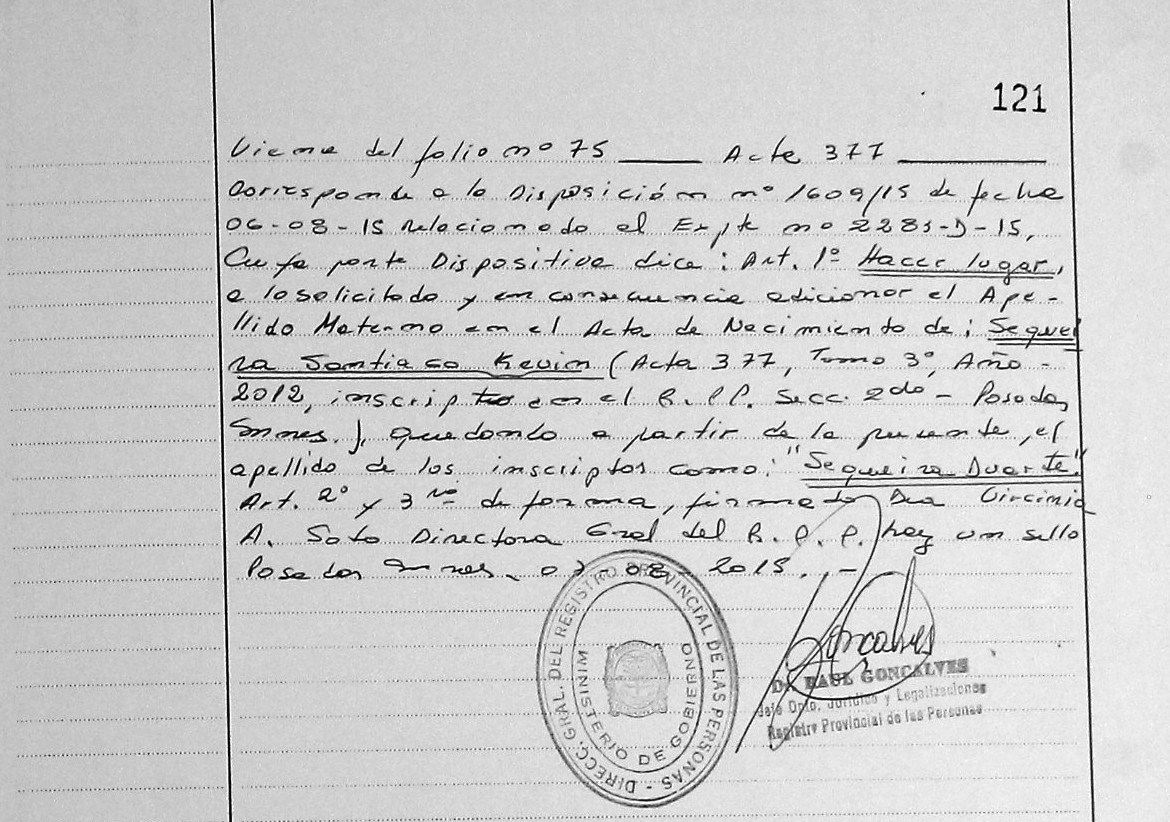 121
Viene del folio nº 75 ——— Acta 377 ———
Corresponde a la Disposición nº 1609/15 de fecha
06-08-15 Relacionado al Expte nº 2281-D-15,
Cuya parte Dispositiva dice: Art. 1º Hacer lugar,
a lo solicitado y en consecuencia adicionar el Ape-
llido Materno en el Acta de Nacimiento de: Sequei
ra Santiago Kevin (Acta 377, Tomo 3º, Año-
2012, inscripto en el R.P.P. Secc. 2do - Posadas,
Mnes.), quedando a partir de la presente, el
apellido de los inscriptos como: "Sequeira Duarte".
Art. 2º y 3º de forma, firmado Dra Virginia
A. Soto Directora Gral del R.P.P. hay un sello
Posadas Mnes, 07-08-2015.-
DIRECC. GRAL. DEL REGISTRO PROVINCIAL DE LAS PERSONAS -
MINISTERIO DE GOBIERNO
Goncalves
Dr. RAUL GONCALVES
Jefe Dpto. Jurídico y Legalizaciones
Registro Provincial de las Personas